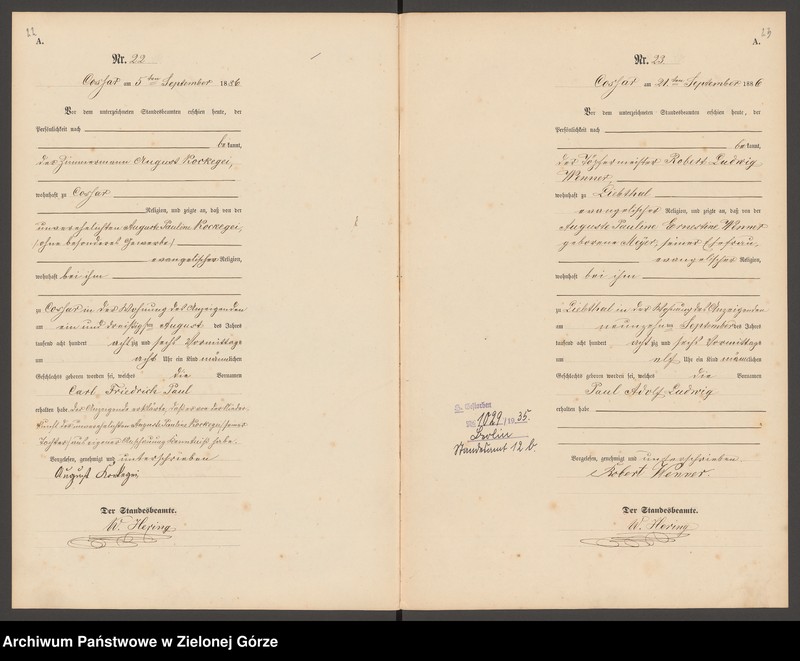 22
A.
Nr. 22
Cossar am 5ten September 1886
Vor dem unterzeichneten Standesbeamten erschien heute, der
Persönlichkeit nach
bekannt,
der Zimmermann August Kockegei,
wohnhaft zu Cossar
Religion, und zeigte an, daß von der
unverehelichten Auguste Pauline Kockegei,
(ohne besonderes Gewerbe)
evangelischer Religion,
wohnhaft bei ihm
zu Cossar in der Wohnung des Anzeigenden
am ein und dreißigsten August des Jahres
tausend acht hundert achtzig und sechs Vormittags
um acht Uhr ein Kind männlichen
Geschlechts geboren worden sei, welches die Vornamen
Carl Friedrich Paul
erhalten habe. Der Anzeigende erklärte, daß er von der Nieder-
kunft der unverehelichten Auguste Pauline Kockegei, seiner
Tochter, aus eigener Anschauung Kenntniß habe.
Vorgelesen, genehmigt und unterschrieben
August Kockegei
Der Standesbeamte.
W. Hering
23
A.
Nr. 23
Cossar am 21ten September 1886
Vor dem unterzeichneten Standesbeamten erschien heute, der
Persönlichkeit nach
bekannt,
der Töpfermeister Robert Ludwig
Wenner
wohnhaft zu Liebthal
evangelischer Religion, und zeigte an, daß von der
Auguste Pauline Ernestine Wenner
geborene Meyer, seiner Ehefrau,
evangelischer Religion,
wohnhaft bei ihm
zu Liebthal in der Wohnung des Anzeigenden
am neunzehnten September des Jahres
tausend acht hundert achtzig und sechs Vormittags
um elf Uhr ein Kind männlichen
Geschlechts geboren worden sei, welches die Vornamen
Paul Adolf Ludwig
erhalten habe
Vorgelesen, genehmigt und unterschrieben
Robert Wenner.
Der Standesbeamte.
W. Hering
Gestorben
Nr. 1029/1935.
Berlin
Standesamt 12 b.
Archiwum Państwowe w Zielonej Górze